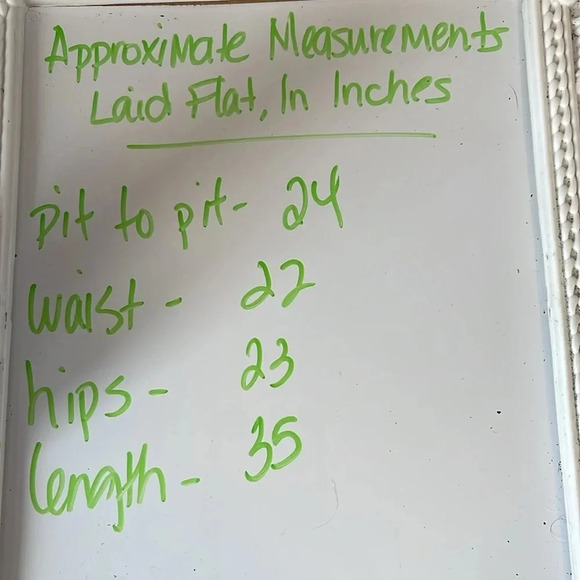 Approximate Measurements
Laid Flat, In Inches
pit to pit- 24
waist - 22
hips - 23
length - 35